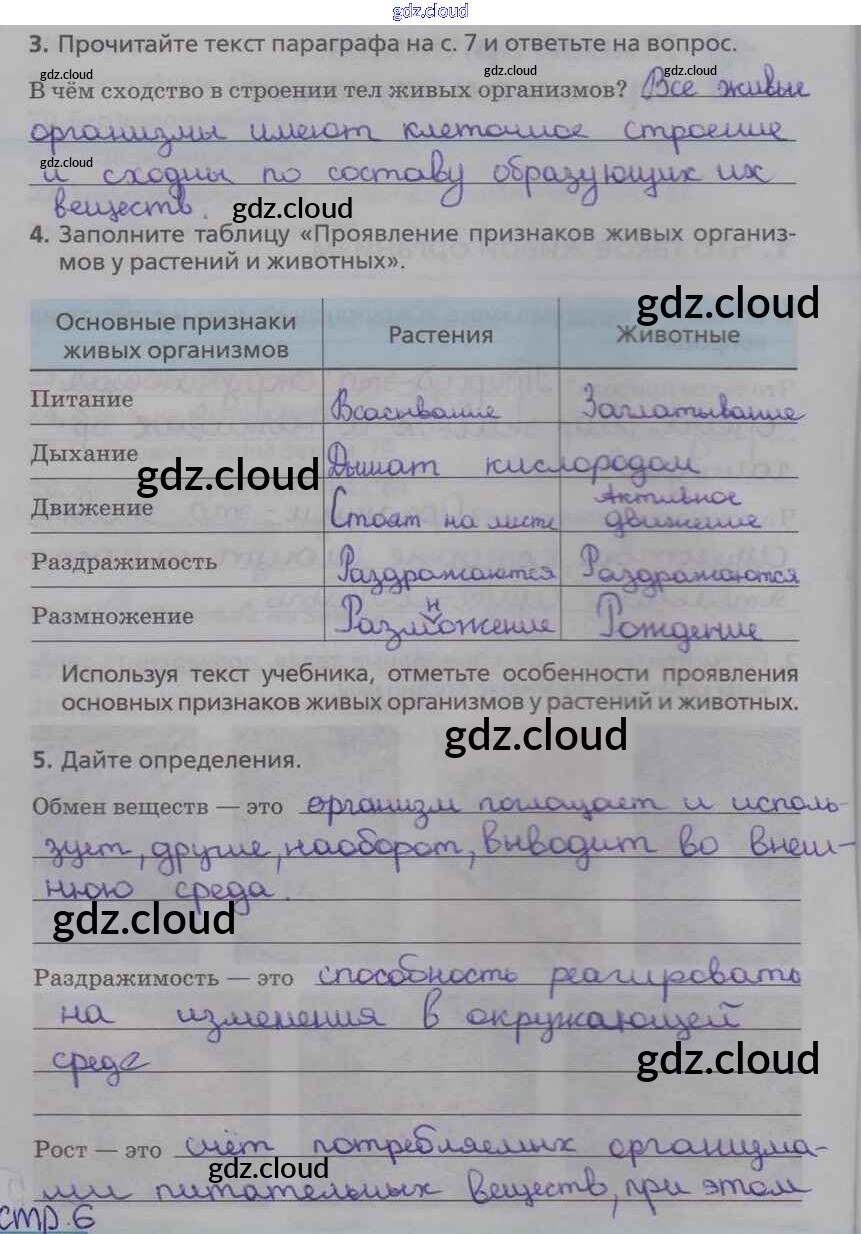 gdz.cloud
3. Прочитайте текст параграфа на с. 7 и ответьте на вопрос.
gdz.cloud gdz.cloud
В чём сходство в строении тел живых организмов? Все живые
организмы имеют клеточное строение
gdz.cloud
и сходны по составу образующих их
веществ. gdz.cloud
4. Заполните таблицу «Проявление признаков живых организ-
мов у растений и животных».
gdz.cloud
Основные признаки живых организмов Растения Животные
Питание Всасывание Заглатывание
Дыхание Дышат кислородом
gdz.cloud
Движение Стоят на месте Активное движение
Раздражимость Раздражаются Раздражаются
Размножение Размножение Рождение
Используя текст учебника, отметьте особенности проявления
основных признаков живых организмов у растений и животных.
gdz.cloud
5. Дайте определения.
Обмен веществ — это организм поглощает и исполь-
зует, другие, наоборот, выводит во внеш-
нюю среда.
gdz.cloud
Раздражимость — это способность реагировать
на изменения в окружающей
среде gdz.cloud
Рост — это счёт потребляемых организма-
gdz.cloud
ми питательных веществ, при этом
стр. 6